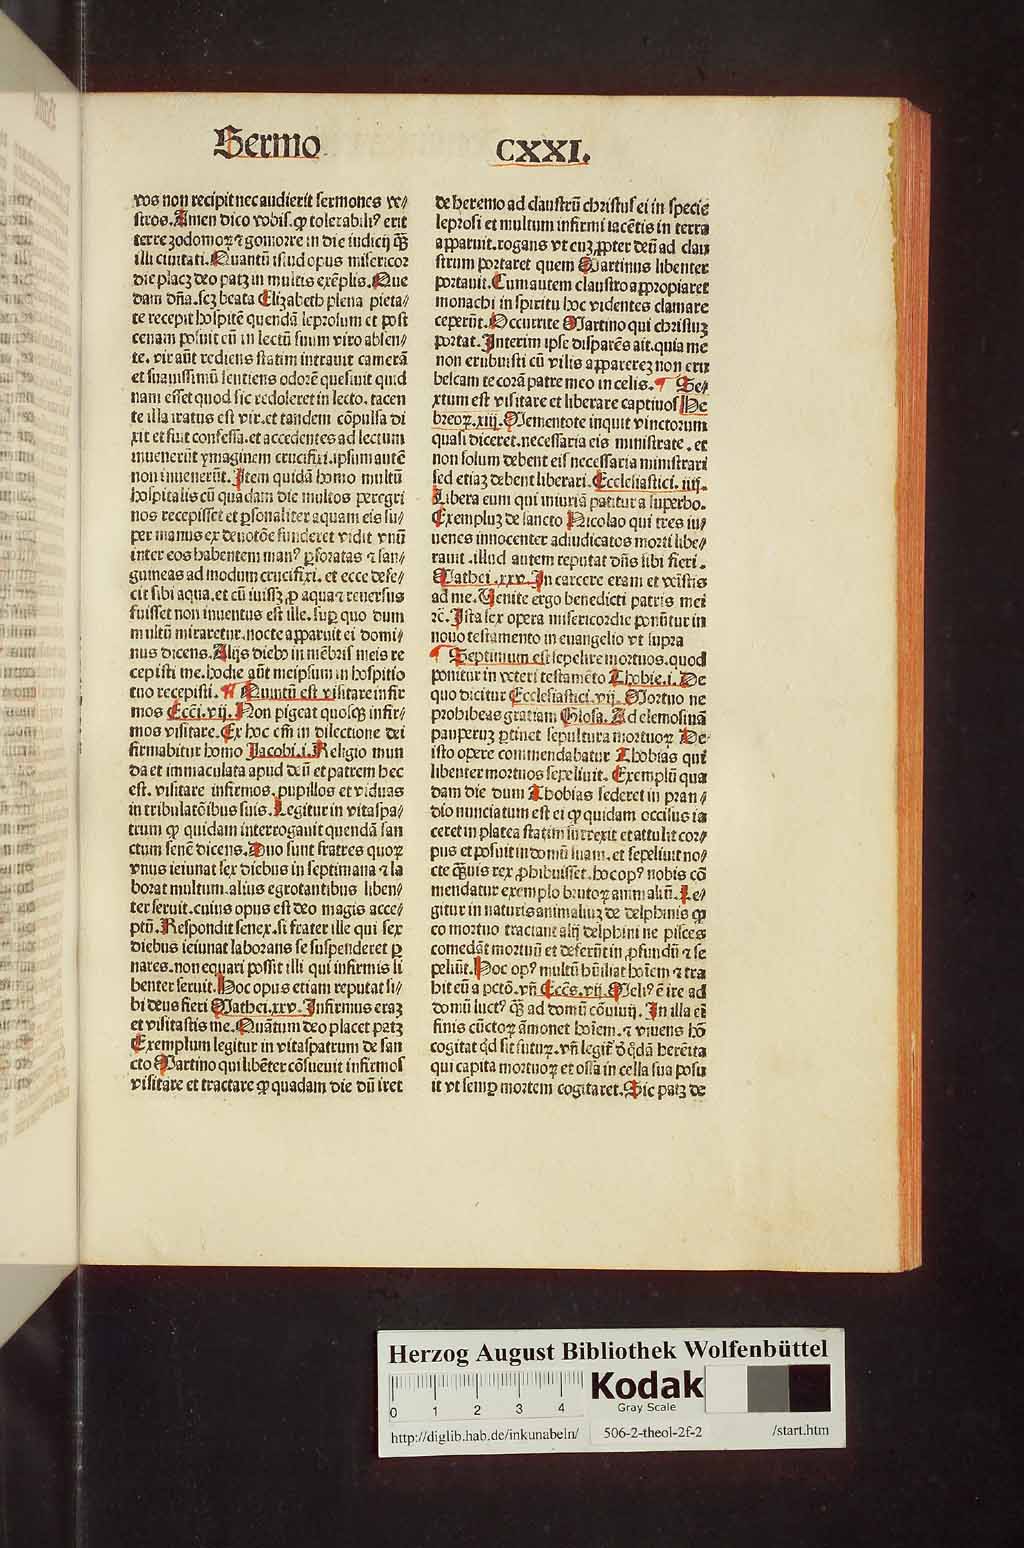 Sermo CXXI.
vos non recipit nec audierit sermones ve⸗
stros. Amen dico vobis. ꝙ tolerabiliꝰ erit
terre zodomoꝝ ⁊ gomorre in die iudicij qͣꝫ
illi ciuitati. Quantū istud opus misericor
die placꝫ deo patꝫ in multis exēplis. Que
dam dn̄a. scꝫ beata Elizabeth plena pieta⸗
te recepit hospitē quendā leprosum et post
cenam posuit eū in lectū suum viro absen⸗
te. vir aūt rediens statim intrauit camerā
et suauissimū sentiens odorē quesiuit quid
nam esset quod sic redoleret in lecto. tacen
te illa iratus est vir. et tandem cōpulsa di
xit et fuit confessa. et accedentes ad lectum
inuenerūt ymaginem crucifixi. ipsum autē
non inuenerūt. Item quidā homo multū
hospitalis cū quadam die multos peregri
nos recepisset et ꝑsonaliter aquam eis su⸗
per manus ex deuotōe funderet vidit vnū
inter eos habentem manꝰ ꝑforatas ⁊ san⸗
guineas ad modum crucifixi. et ecce defe⸗
cit sibi aqua. et cū iuissꝫ ꝓ aqua ⁊ reuersus
fuisset non inuentus est ille. suꝑ quo dum
multū miraretur. nocte apparuit ei domi⸗
nus dicens. Alijs dieb in mēbris meis re
cepisti me. hodie aūt meipsum in hospitio
tuo recepisti. ¶ Quintū est visitare infir
mos Ecci. vij. Non pigeat quosqꝫ infir⸗
mos visitare. Ex hoc em̄ in dilectione dei
firmabitur homo Jacobi. i. Religio mun
da et immaculata apud deū et patrem hec
est. visitare infirmos. pupillos et viduas
in tribulatōibus suis. Legitur in vitaspa⸗
trum ꝙ quidam interrogauit quendā san
ctum senē dicens. Duo sunt fratres quoꝝ
vnus ieiunat sex diebus in septimana ⁊ la
borat multum. alius egrotantibus liben⸗
ter seruit. cuius opus est deo magis acce⸗
ptū. Respondit senex. si frater ille qui sex
diebus ieiunat laborans se suspenderet ꝑ
nares. non equari possit illi qui infirmis li
benter seruit. Hoc opus etiam reputat si⸗
bi deus fieri Mathei. xxv. Infirmus eraꝫ
et visitastis me. Quātum deo placet patꝫ
Exemplum legitur in vitaspatrum de san
cto Martino qui libēter cōsueuit infirmos
visitare et tractare ꝙ quadam die dū iret
de heremo ad claustrū christus ei in specie
leprosi et multum infirmi iacētis in terra
apparuit. rogans vt euꝫ ꝓpter deū ad clau
strum portaret quem Martinus libenter
portauit. Cum autem claustro appropiaret
monachi in spiritu hoc videntes clamare
ceperūt. Occurrite Martino qui christuꝫ
portat. Interim ipse disparēs ait. quia me
non erubuisti cū vilis apparereꝫ non eru
bescam te corā patre meo in celis. ¶ Se⸗
xtum est visitare et liberare captiuos He
breoꝝ. xiij. Mementote inquit vinctorum
quasi diceret. necessaria eis ministrate. et
non solum debent eis necessaria ministrari
sed etiaꝫ debent liberari. Ecclesiastici. iiij.
Libera eum qui iniuriā patitur a superbo.
Exempluꝫ de sancto Nicolao qui tres iu⸗
uenes innocenter adiudicatos morti libe⸗
rauit. illud autem reputat dn̄s sibi fieri.
Mathei. xxv. In carcere eram et venistis
ad me. Venite ergo benedicti patris mei
⁊c̄. Ista sex opera misericordie ponūtur in
nouo testamento in euangelio vt supra
¶ Septimum est sepelire mortuos. quod
ponitur in veteri testamēto Thobie. i. De
quo dicitur Ecclesiastici. vij. Mortuo ne
prohibeas gratiam Glosa. Ad elemosinā
pauperuꝫ ꝑtinet sepultura mortuoꝝ De
isto opere commendabatur Thobias qui
libenter mortuos sepeliuit. Exemplū qua
dam die dum Thobias sederet in pran⸗
dio nunciatum est ei ꝙ quidam occisus ia
ceret in platea statim surrexit et attulit cor⸗
pus et posuit in domū suam. et sepeliuit no⸗
cte qͣꝫuis rex ꝓhibuisset. hoc opꝰ nobis cō
mendatur exemplo brutoꝝ animaliū. Le⸗
gitur in naturis animaliuꝫ de delphinis ꝙ
eo mortuo tractant alij delphini ne pisces
comedāt mortuū et deferūt in ꝓfundū ⁊ se
peliūt. Hoc opꝰ multū hūiliat hoīem ⁊ tra
hit eū a pctō. vn̄ Eccēs. vij. Meliꝰ ē ire ad
domū luctꝰ qͣꝫ ad domū cōuiuij. In illa em̄
finis cūctoꝝ āmonet hoīem. ⁊ viuens hō
cogitat qd sit futuꝝ. vn̄ legit de qdā herēita
qui capita mortuoꝝ et ossa in cella sua posu
it vt semꝑ mortem cogitaret. Sic patꝫ de
Herzog August Bibliothek Wolfenbüttel
Kodak
Gray Scale
0 1 2 3 4
http://diglib.hab.de/inkunabeln/ 506-2-theol-2f-2 /start.htm